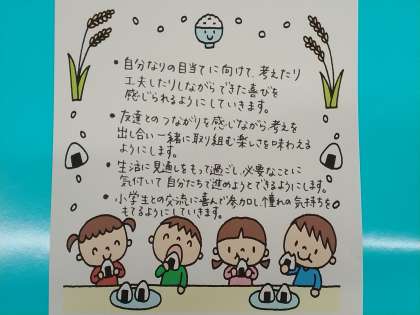 ・自分なりの目当てに向けて、考えたり
工夫したりしながらできた喜びを
感じられるようにしていきます。
・友達とのつながりを感じながら考えを
出し合い一緒に取り組む楽しさを味わえる
ようにします。
・生活に見通しをもって過ごし、必要なことに
気付いて自分たちで進めようとできるようにします。
・小学生との交流に喜んで参加し、憧れの気持ちを
もてるようにしていきます。